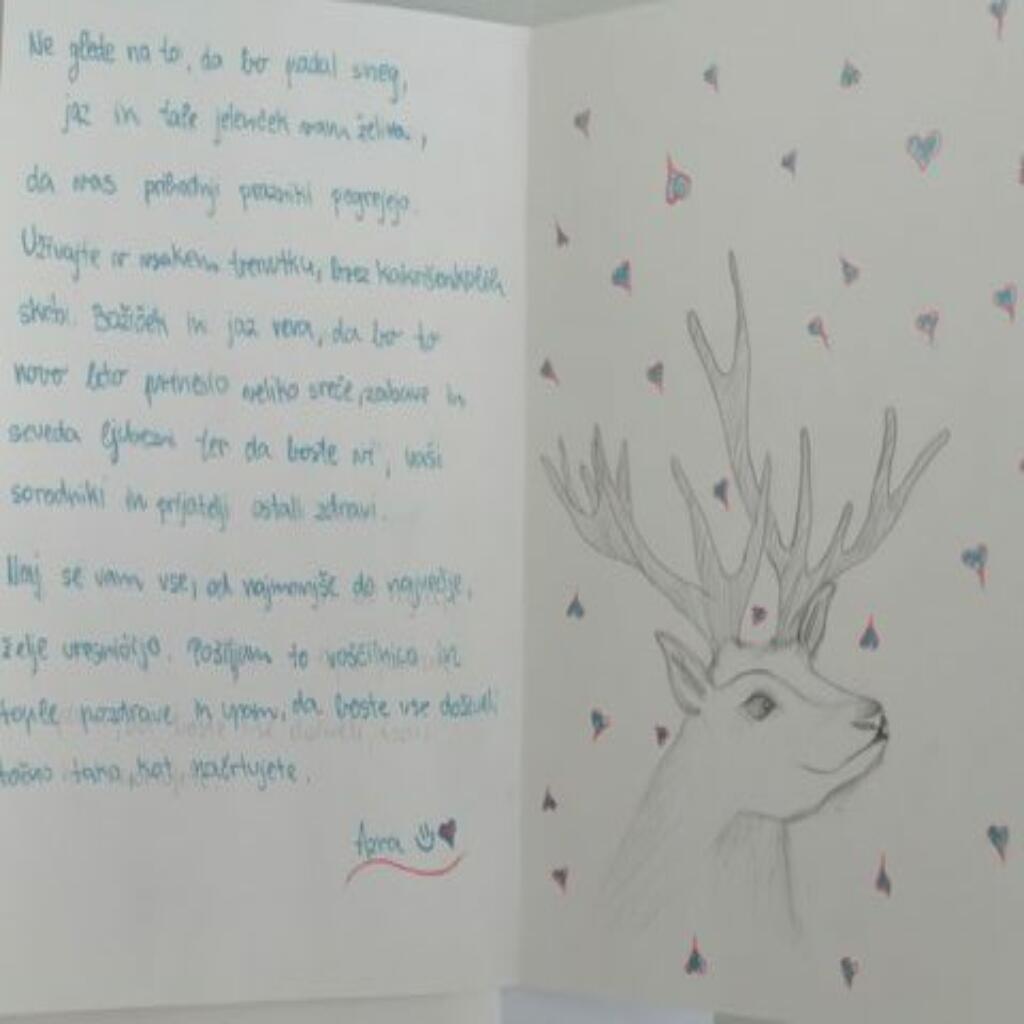 Ne glede na to, da bo padal sneg,
jaz in tale jelenček vam želiva,
da vas prihodnji prazniki pogrejejo.
Uživajte v vsakem trenutku, brez kakršnihkoli
skrbi. Božiček in jaz veva, da bo to
novo leto prineslo veliko sreče, zabave in
seveda ljubezni ter da boste vi, vaši
sorodniki in prijatelji ostali zdravi.
Naj se vam vse, od najmanjše do največje,
želje uresničijo. Pošiljam to voščilnico in
tople pozdrave in upam, da boste vse doživeli
točno tako, kot načrtujete.